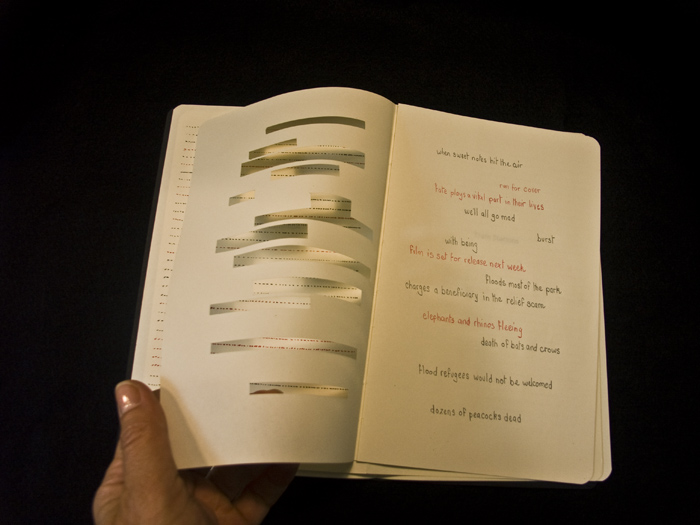 when sweet notes hit the air
run for cover
fate plays a vital part in their lives
we'll all go mad
burst
with being
film is set for release next week
floods most of the park
charges a beneficiary in the relief scam
elephants and rhinos fleeing
death of bats and crows
flood refugees would not be welcomed
dozens of peacocks dead